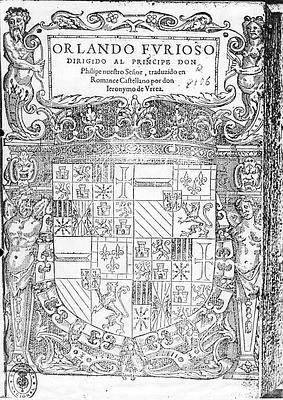 ORLANDO FVRIOSO
DIRIGIDO AL PRINCIPE DON
Philipe nuestro Señor, traduzido en
Romance Castellano por don
Ieronymo de Vrrea.